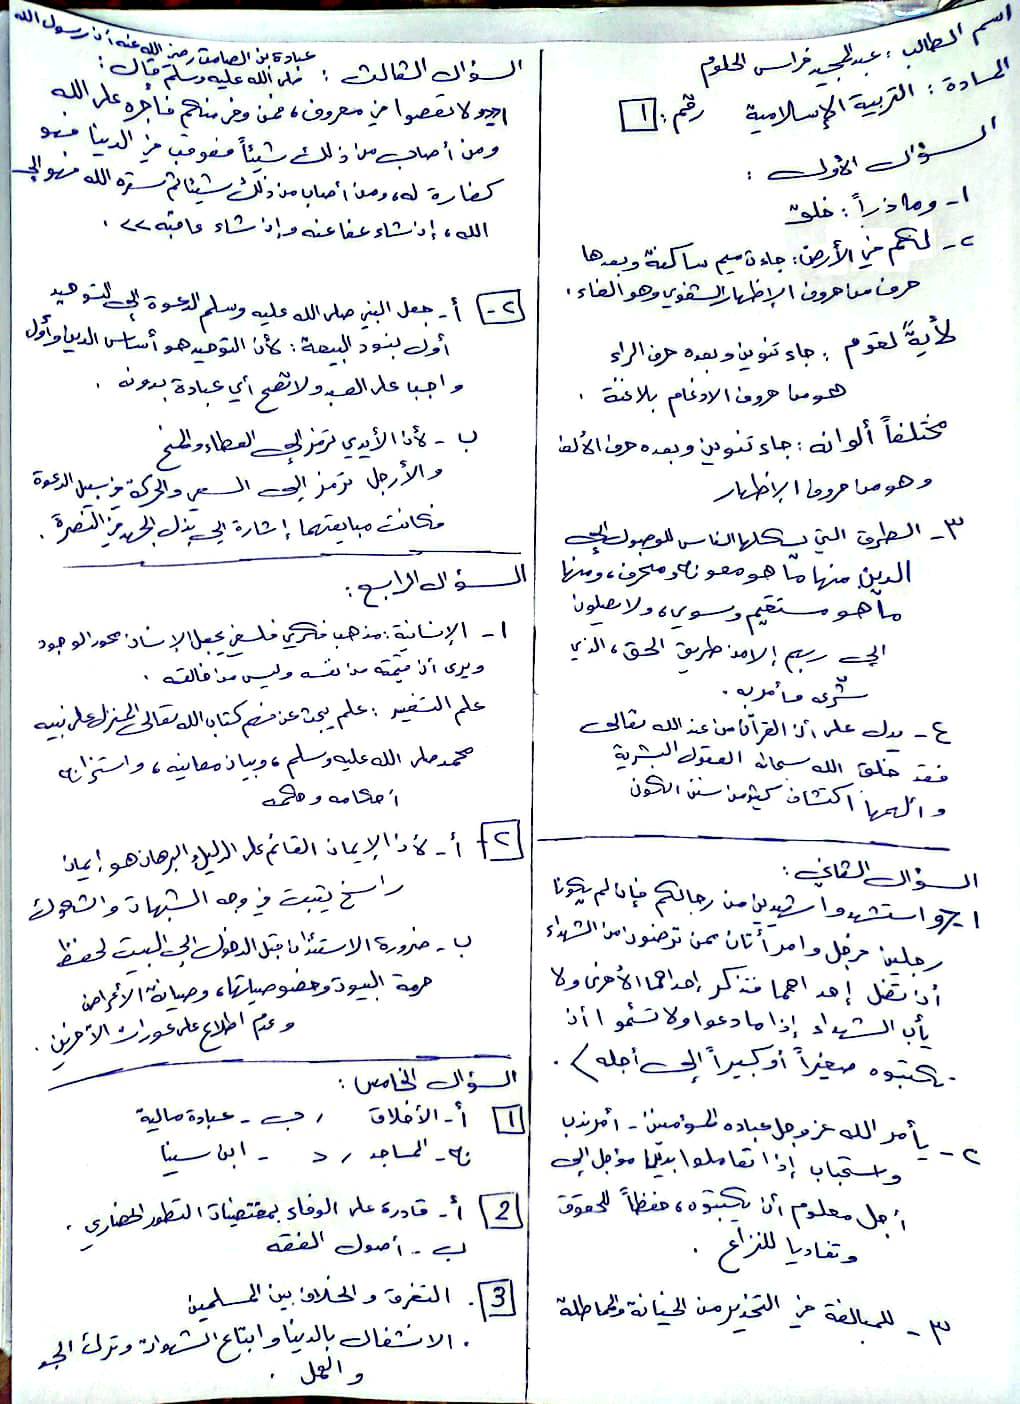 اسم الطالب : عبد المجيد فراس الحلوم
المادة : التربية الإسلامية رقم : 1
السؤال الأول :
١- وما ذرأ : خلق
٢- لكم في الأرض : جاءت ميم ساكنة وبعدها
حرف من حروف الإظهار الشفوي وهو الفاء .
لآيةً لقوم : جاء تنوين وبعده حرف الراء
هو من حروف الادغام بلا غنة .
مختلفاً ألوانه : جاء تنوين وبعده حرف الألف
وهو من حروف الإظهار
٣- الطرق التي يسكلها الناس للوصول إلى
الدين منها ما هو معوج ومنحرف ، ومنها
ما هو مستقيم وسوي ، ولا يصلون
إلى ربهم إلا من طريق الحق ، الذي
شرّع وأمر به .
٤- يدل على أن القرآن من عند الله تعالى
فقد خلق الله سبحانه العقول البشرية
وألهمها اكتشاف كثير من سنن الكون
السؤال الثاني :
١- واستشهدوا شهيدين من رجالكم فإن لم يكونا
رجلين فرجل وامرأتان ممن ترضون من الشهداء
أن تضل إحداهما فتذكر إحداهما الأخرى ولا
يأب الشهداء إذا ما دعوا ولا تسئموا أن
تكتبوه صغيراً أو كبيراً إلى أجله ) .
٢- يأمر الله عز وجل عباده المؤمنين - أمر ندب
واستحباب إذا تعاملوا بدين مؤجل إلى
أجل معلوم أن يكتبوه ، حفظاً للحقوق
وتفاديا للنزاع .
٣- للمبالغة في التحذير من الخيانة والمماطلة
السؤال الثالث : عبادة بن الصامت رضي الله عنه أن رسول الله
صلى الله عليه وسلم قال :
ولا تعصوا في معروف ، فمن وفى منكم فأجره على الله
ومن أصاب من ذلك شيئاً فعوقب في الدنيا فهو
كفارة له ، ومن أصاب من ذلك شيئا ثم ستره الله فهو إلى
الله ، إن شاء عفا عنه وإن شاء عاقبه >> .
٢- أ- جعل النبي صلى الله عليه وسلم الدعوة إلى التوحيد
أول بنود البيعة : لأن التوحيد هو أساس الدين وأول
واجب على العبد ولا تصح أي عبادة بدونه .
ب - لأن الأيدي ترمز إلى العطاء والمنح
والأرجل ترمز إلى السعي والحركة في سبيل الدعوة
فكانت مبايعتهما إشارة إلى بذل الجهد في النصرة .
السؤال الرابع :
١- الإنسانية : مذهب فكري فلسفي يجعل الإنسان محور الوجود
ويرى أن قيمته من نفسه وليس من خالقه .
علم التفسير : علم يبحث عن فهم كتاب الله تعالى المنزل على نبيه
محمد صلى الله عليه وسلم ، وبيان معانيه ، واستخراج
أحكامه وحكمه
٢- أ- لأن الإيمان القائم على الدليل والبرهان هو إيمان
راسخ يثبت في وجه الشبهات والشكوك
ب- ضرورة الاستئذان قبل الدخول إلى البيت لحفظ
حرمة البيوت وخصوصياتها ، وصيانة الأعراض
وعدم اطلاع على عورات الآخرين .
السؤال الخامس :
1 أ- الأخلاق , ب - عبادة مالية
ج- المساجد , د - ابن سينا
2 أ- قادرة على الوفاء بمقتضيات التطور الحضاري .
ب - أصول الفقه
3 . التفرق والخلاف بين المسلمين
. الانشغال بالدنيا واتباع الشهوات وترك الجد
والعمل .